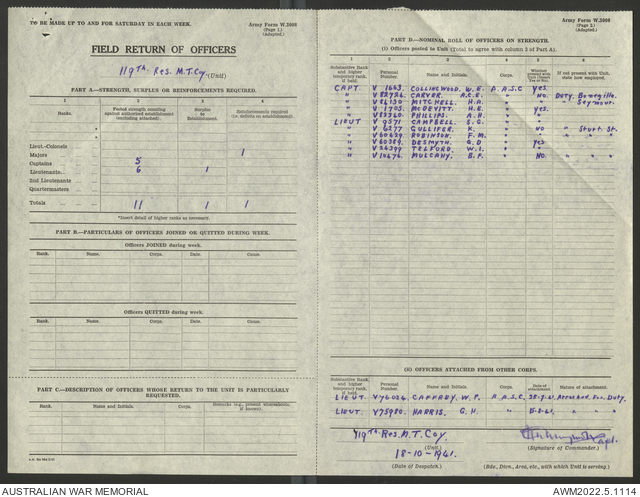 TO BE MADE UP TO AND FOR SATURDAY IN EACH WEEK.
Army Form W.3008
(Page 1.)
(Adapted.)
FIELD RETURN OF OFFICERS
119th. Res. M.T. Coy. (Unit)
PART A.—STRENGTH, SURPLUS OR REINFORCEMENTS REQUIRED.
1 2 3 4
Ranks. Posted strength counting against authorised establishment (excluding attached). Surplus to Establishment. Reinforcements required (i.e. deficits on establishment).
Lieut.-Colonels
Majors 1
Captains 5
Lieutenants 6 1
2nd Lieutenants
Quartermasters
Totals 11 1 1
*Insert detail of higher ranks as necessary.
PART B.—PARTICULARS OF OFFICERS JOINED OR QUITTED DURING WEEK.
Officers JOINED during week.
Rank. Name. Corps. Date. Remarks.
Officers QUITTED during week.
Rank. Name. Corps. Date. Remarks.
PART C.—DESCRIPTION OF OFFICERS WHOSE RETURN TO THE UNIT IS PARTICULARLY REQUESTED.
Rank. Name and Initials. Corps. Remarks (e.g., present whereabouts, if known).
Army Form W.3008
(Page 2.)
(Adapted.)
PART D.—NOMINAL ROLL OF OFFICERS ON STRENGTH.
(i) Officers posted to Unit (Total to agree with column 2 of Part A).
1 2 3 4 5 6
Substantive Rank and higher temporary rank, if held. Personal Number. Name and Initials. Corps. Whether present with Unit (Insert Yes or No). If not present with Unit, state how employed.
CAPT. V 1643 COLLINGWOOD, W.E. A.A.S.C yes.
" CARVER. A.C.E. " NO. DUTY. Bonegilla.
" MITCHELL. H.A. " " " Seymour.
" V 1705. McDEVITT. H.E. " yes.
" PHILLIPS. A.H. " "
LIEUT V 9571 CAMPBELL. S.G. " "
" V 6277 GULLIFER. K. " NO " Sturt. St.
" ROBINSON. F.M. " " " "
" DESMYTH. G.D " yes
" TELFORD. W.I. " "
" MULCAHY. B.F. " NO " "
(ii) OFFICERS ATTACHED FROM OTHER CORPS.
Substantive Rank and higher temporary rank, if held. Personal Number. Name and Initials. Corps. Date of attachment. Nature of attachment.
LIEUT. V76026 CAFFREY. W.P. A.A.S.C. Attached. For. Duty.
LIEUT. V75980. HARRIS. G.H. " " "
119th. Res. M.T. Coy.
(Unit.) (Signature of Commander.)
18-10-1941.
(Date of Despatch.) (Bde., Divn., Area, etc., with which Unit is serving.)
AUSTRALIAN WAR MEMORIAL
AWM2022.5.1114